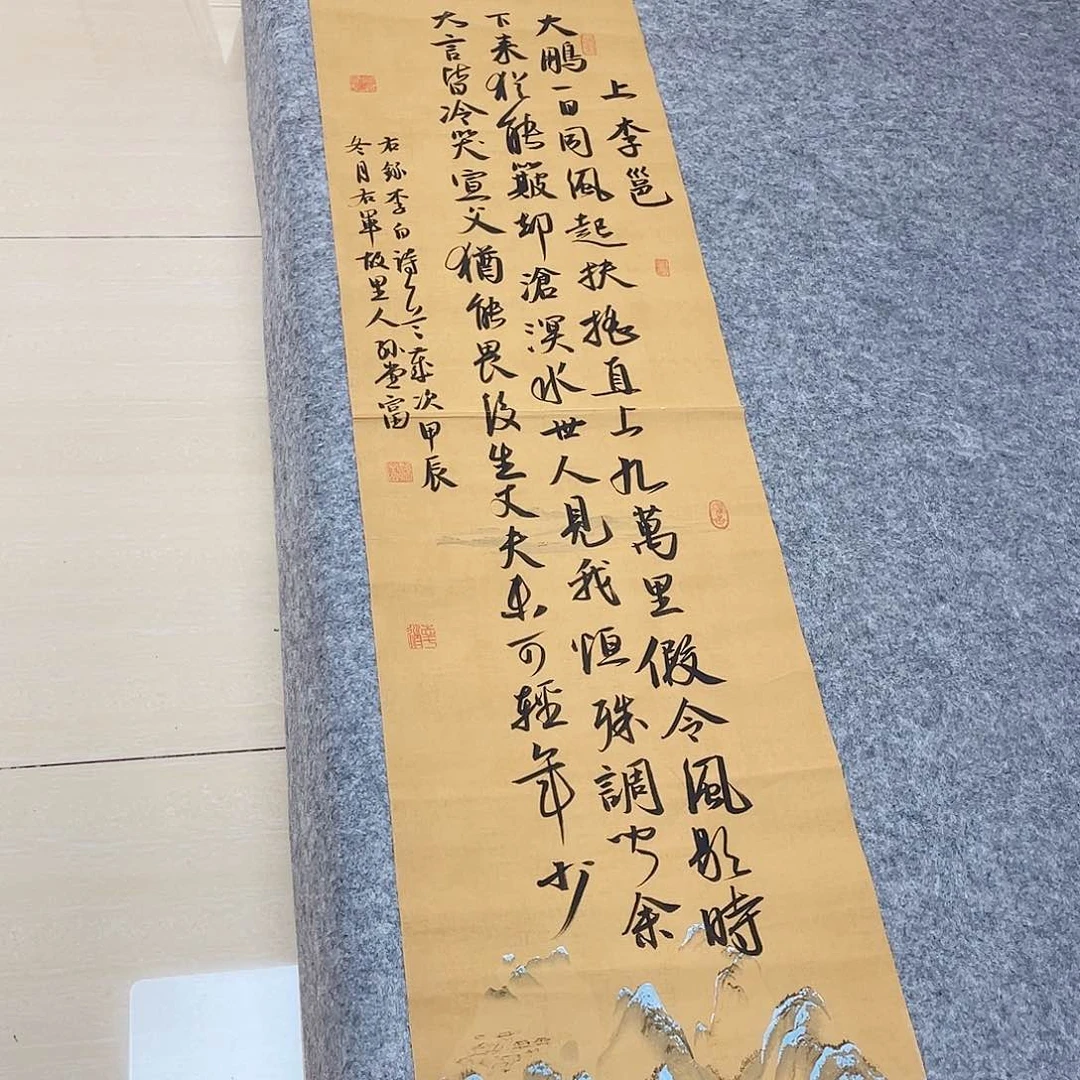 上李邕
大鵬一日同風起扶搖直上九萬里假令風歇時
下来猶能簸却滄溟水世人見我恒殊調聞余
大言皆冷笑宣父猶能畏後生丈夫未可輕年少
右錄李白詩歲次甲辰
冬月右軍故里人孙富